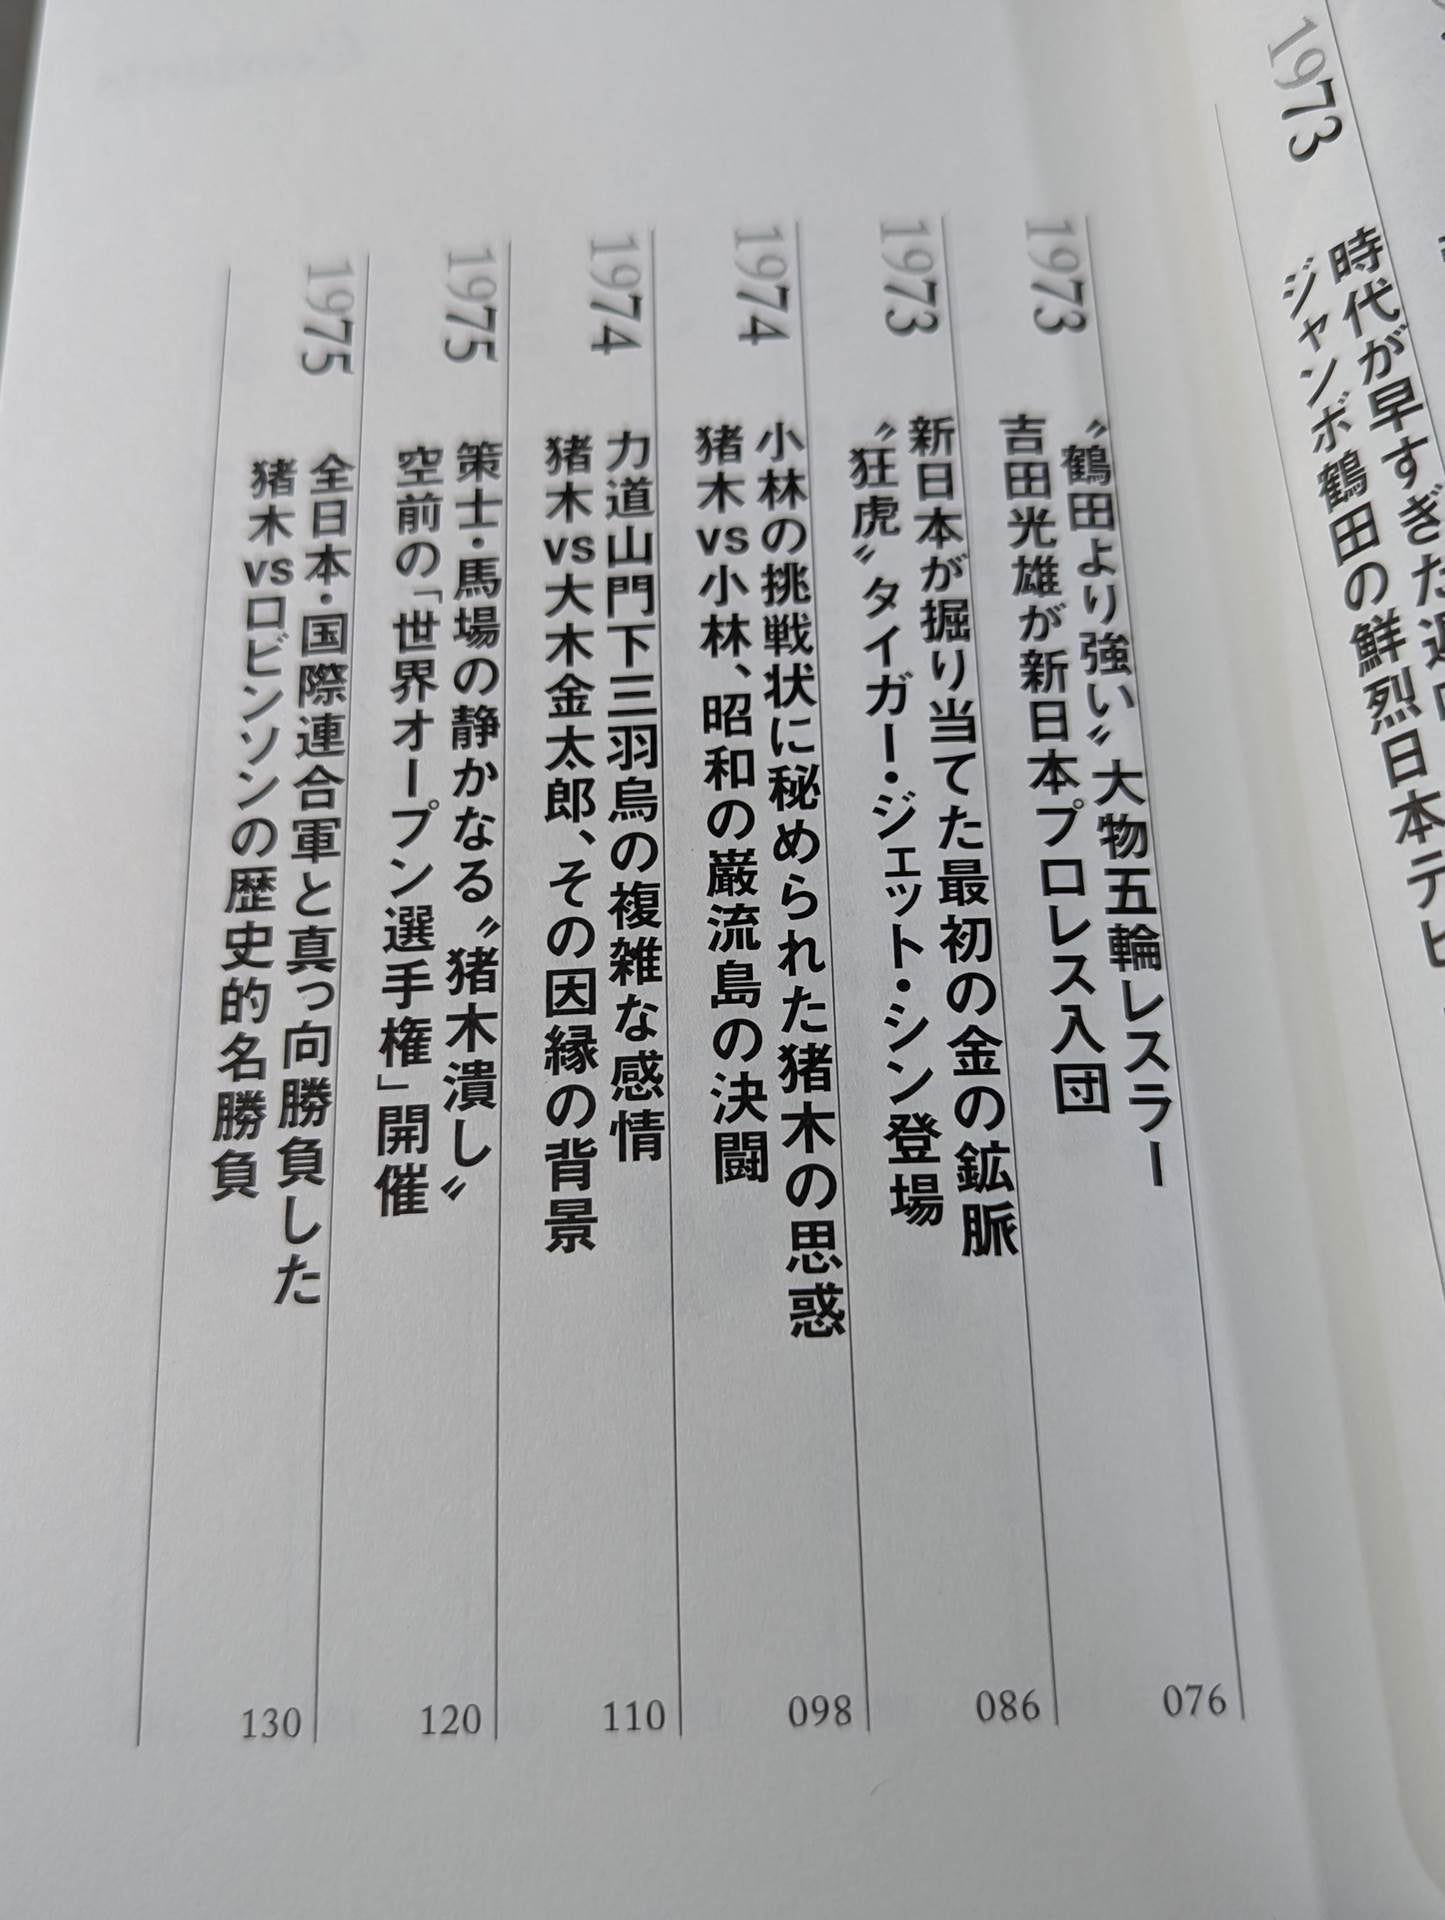 1973
時代が早すぎた
ジャンボ鶴田の鮮烈日本テ
1973
〝鶴田より強い〟大物五輪レスラー
吉田光雄が新日本プロレス入団
076
1973
新日本が掘り当てた最初の金の鉱脈
〝狂虎〟タイガー・ジェット・シン登場
086
1974
小林の挑戦状に秘められた猪木の思惑
猪木vs小林、昭和の巌流島の決闘
098
1974
力道山門下三羽烏の複雑な感情
猪木vs大木金太郎、その因縁の背景
110
1975
策士・馬場の静かなる〝猪木潰し〟
空前の「世界オープン選手権」開催
120
1975
全日本・国際連合軍と真っ向勝負した
猪木vsロビンソンの歴史的名勝負
130